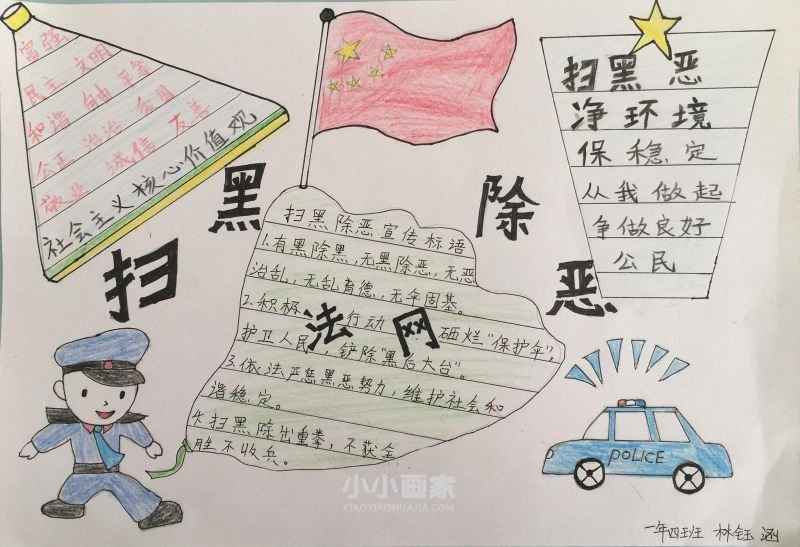 富强
民主 文明
和谐 自由 平等
公正 法治 爱国
敬业 诚信 友善
社会主义核心价值观
扫黑除恶
扫黑除恶宣传标语
1.有黑除黑,无黑除恶,无恶
治乱,无乱育德,无伞固基。
2.积极行动 砸烂“保护伞”,
护卫人民,铲除“黑后大台”。
3.依法严惩黑恶势力,维护社会和
谐稳定。
4.扫黑除出重拳,不获全
胜不收兵。
法网
扫黑 恶
净环境
保稳定
从我做起
争做良好
公民
POLICE
小小画家
XIAOXIAOHUAJIA.COM
一年四班 林钰涵